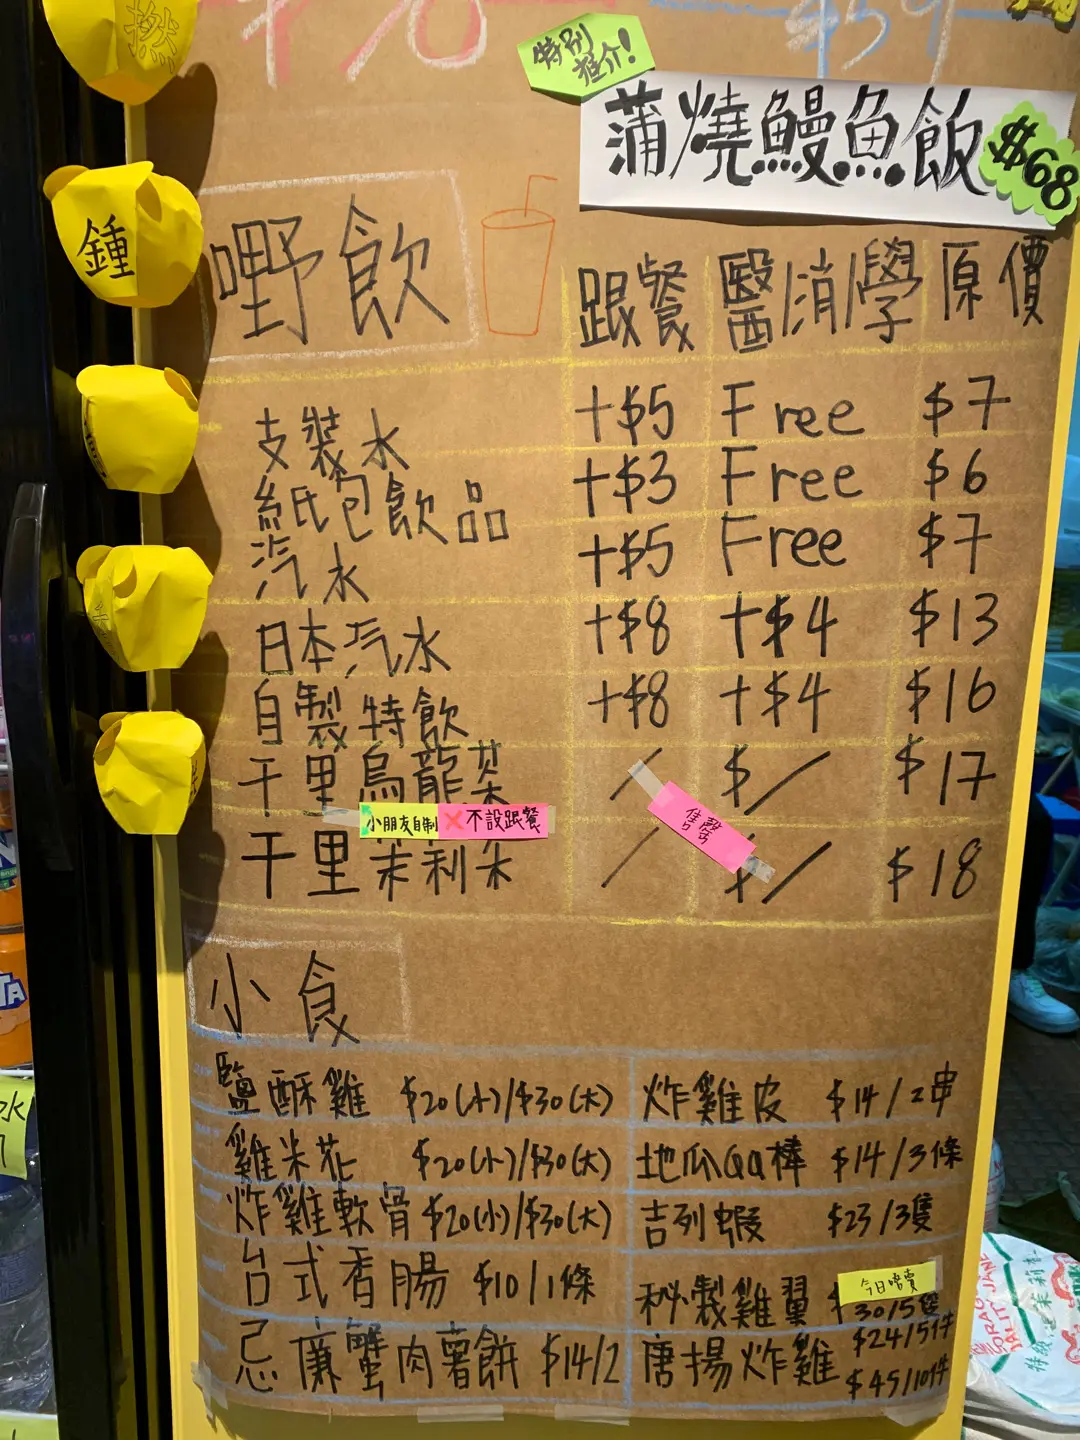 $70
$59
特別
推介!
蒲燒鰻魚飯 $68
鍾
嘢飲
跟餐 醫/消/學 原價
支裝水 +$5 Free $7
紙包飲品 +$3 Free $6
汽水 +$5 Free $7
日本汽水 +$8 +$4 $13
自製特飲 +$8 +$4 $16
千里烏龍茶 / $/ $17
小朋友自制 ❌不設跟餐
售罄
千里茉莉茶 / $/ $18
小食
鹽酥雞 $20(小)/$30(大) 炸雞皮 $14/2串
雞米花 $20(小)/$30(大) 地瓜QQ棒 $14/3條
炸雞軟骨 $20(小)/$30(大) 吉列蝦 $23/3隻
台式香腸 $10/1條 秘製雞翼 $30/5隻
今日唔賣
忌廉蟹肉薯餅 $14/2 唐揚炸雞 $24/5件
$45/10件